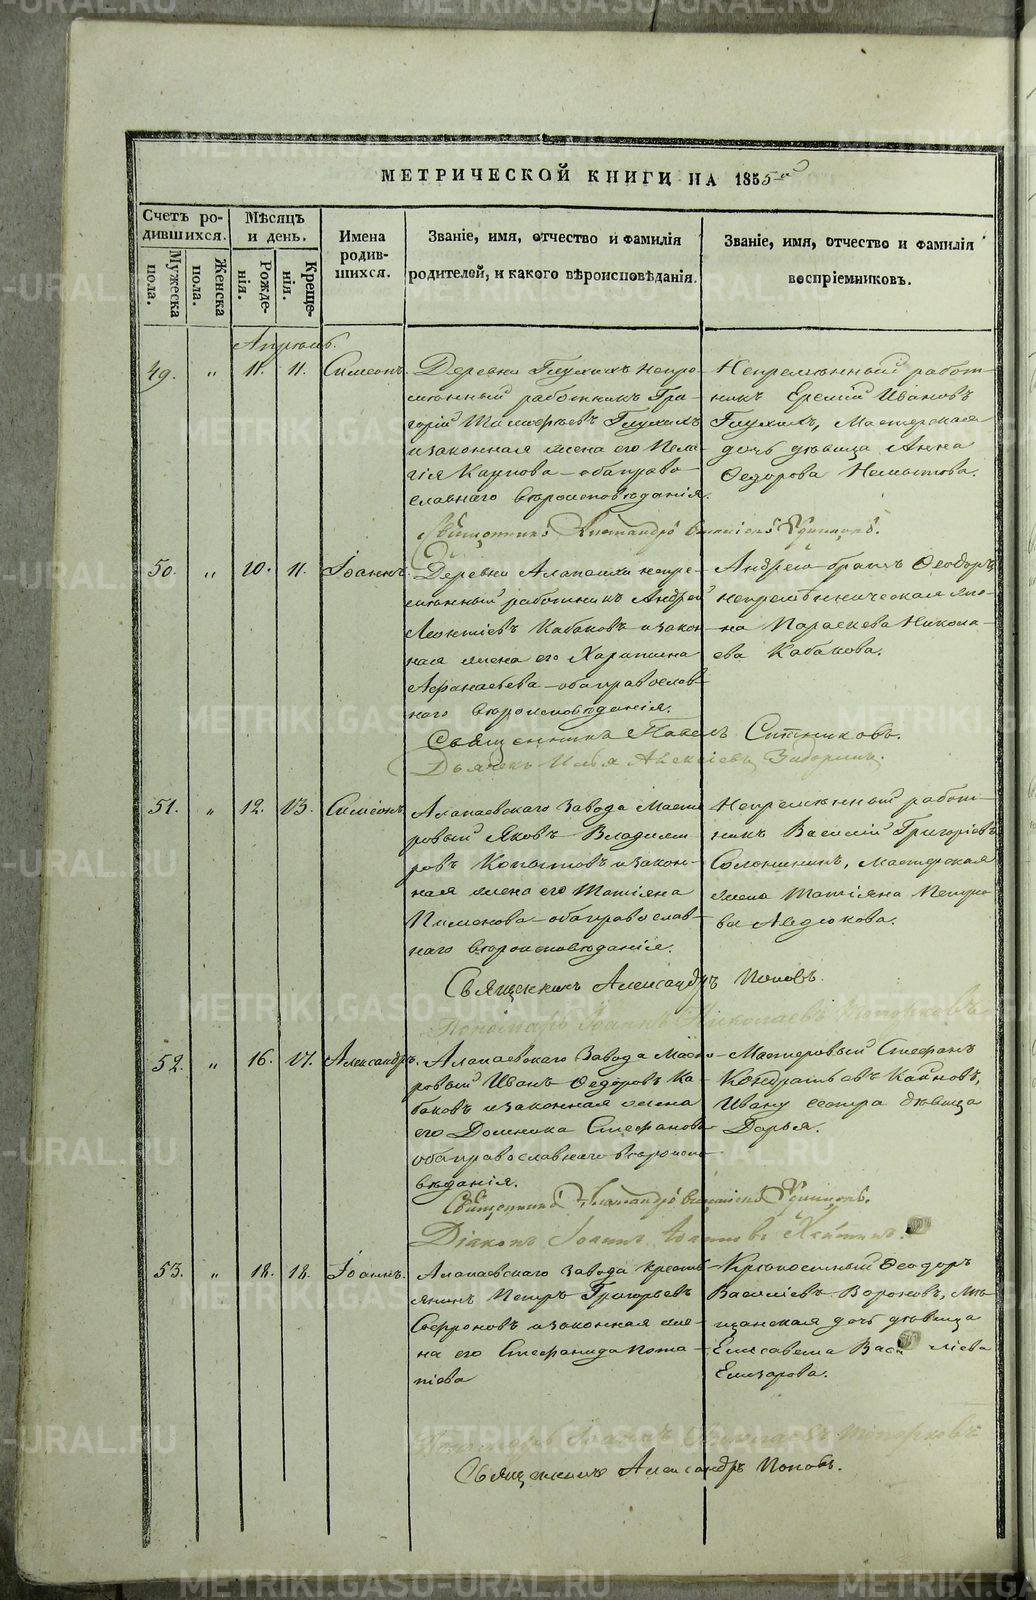 МЕТРИЧЕСКОЙ КНИГИ НА 1855 й
Счетъ ро-
дившихся.
Мужеска
пола.
Женска
пола.
Мѣсяцъ
и день.
Рожде-
нія.
Креще-
нія.
Имена
родив-
шихся.
Званіе, имя, отчество и фамилія
родителей, и какого вѣроисповѣданія.
Званіе, имя, отчество и фамилія
воспріемниковъ.
Апрѣль.
49. " 11. 11. Симеонъ.
Деревни Глухихъ непре-
мѣнный работникъ Гри-
горій Тимофѣевъ Глухихъ
и законная жена его Пела-
гія Карпова – оба право-
славнаго вѣроисповѣданія.
Непремѣнный работ-
никъ Еремій Ивановъ
Глухихъ, Мастерская
дочь дѣвица Анна
Федорова
Священникъ Александръ Удинцовъ.
50. " 10. 11. Іоаннъ.
Деревни Алапаихи непре-
мѣнный работникъ Андрей
Леонтіевъ Кабаковъ и закон-
ная жена его Харитина
Афанасьева – оба православ-
наго вѣроисповѣданія.
Андрею братъ Ѳеодоръ,
непремѣнническая же-
на Параскева Никола-
ева Кабакова.
Священникъ Павелъ Ситниковъ.
Дьячекъ Илья Алексѣевъ
51. " 12. 13. Симеонъ.
Алапаевскаго Завода Масте-
ровый Яковъ Владими-
ровъ Копытовъ и закон-
ная жена его Татіяна
Пименова – оба православ-
наго вѣроисповѣданія.
Непремѣнный работ-
никъ Василій Григорьевъ
Солонининъ, Мастерская
жена Татіяна Петро-
ва Авдюкова.
Священникъ Александръ Поповъ.
Пономарь Іоаннъ Николаевъ Топорковъ
52. " 16. 17. Александръ.
Алапаевскаго Завода Масте-
ровый Иванъ Ѳедоровъ Ка-
баковъ и законная жена
его Домника Стефанова
оба православнаго вѣроиспо-
вѣданія.
Мастеровый Стефанъ
Кондратьевъ Кайновъ,
Ивану сестра дѣвица
Дарья.
Священникъ Александръ Удинцовъ.
Діаконъ Іоаннъ
53. " 18. 18. Іоаннъ.
Алапаевскаго Завода кресть-
янинъ Петръ Григорьевъ
Софроновъ и законная же-
на его Стефанида Пота-
піева
Крѣпостный Ѳеодоръ
Василіевъ Вороновъ, Мѣ-
щанская дочь дѣвица
Елисавета Василіева
Елизарова.
Пономарь Іоаннъ Николаевъ Топорковъ
Священникъ Александръ Поповъ.
METRIKI.GASO-URAL.RU